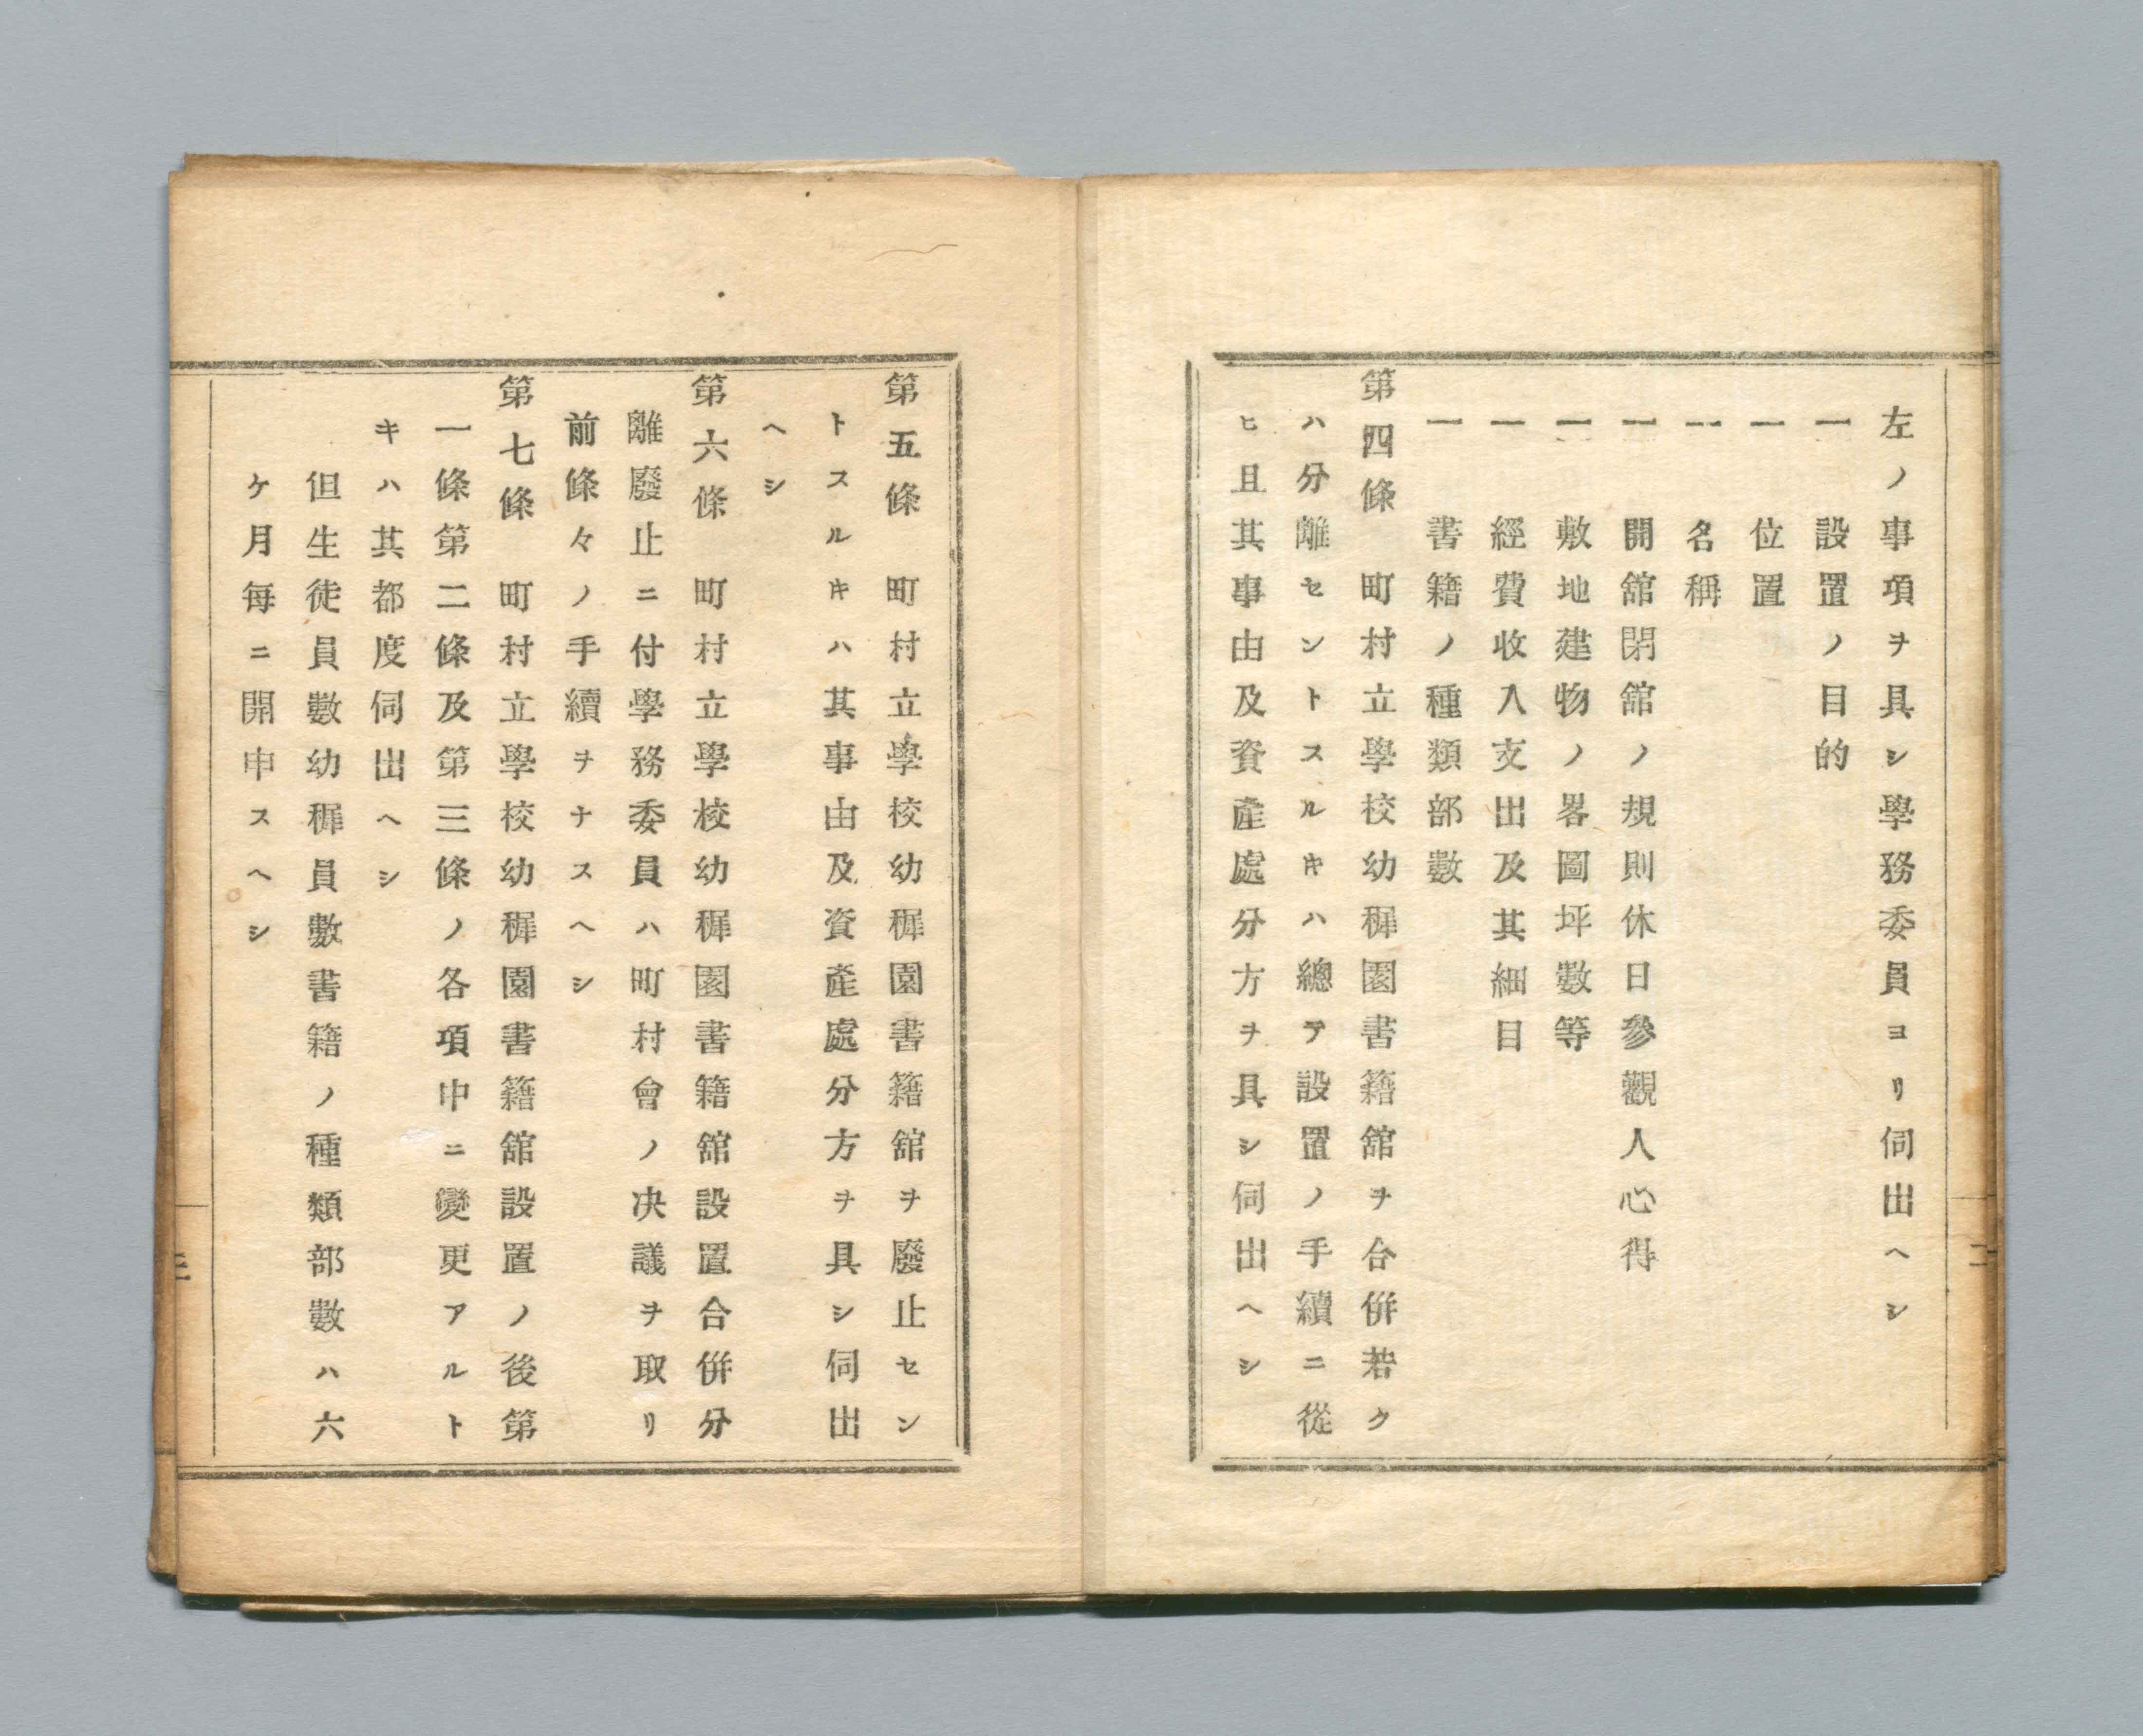 左ノ事項ヲ具シ學務委員ヨリ伺出ヘシ
一 設置ノ目的
一 位置
一 名稱
一 開舘閉舘ノ規則休日參觀人心得
一 敷地建物ノ畧圖坪數等
一 經費收入支出及其細目
一 書籍ノ種類部數
第四條 町村立學校幼穉園書籍舘ヲ合併若ク
ハ分離セントスルキハ總テ設置ノ手續ニ從
ヒ且其事由及資產處分方ヲ具シ伺出ヘシ
第五條 町村立學校幼穉園書籍舘ヲ廢止セン
トスルキハ其事由及資產處分方ヲ具シ伺出
ヘシ
第六條 町村立學校幼穉園書籍舘設置合併分
離廢止ニ付學務委員ハ町村會ノ决議ヲ取リ
前條々ノ手續ヲナスヘシ
第七條 町村立學校幼穉園書籍舘設置ノ後第
一條第二條及第三條ノ各項中ニ變更アルト
キハ其都度伺出ヘシ
但生徒員數幼穉員數書籍ノ種類部數ハ六
ケ月每ニ開申スヘシ